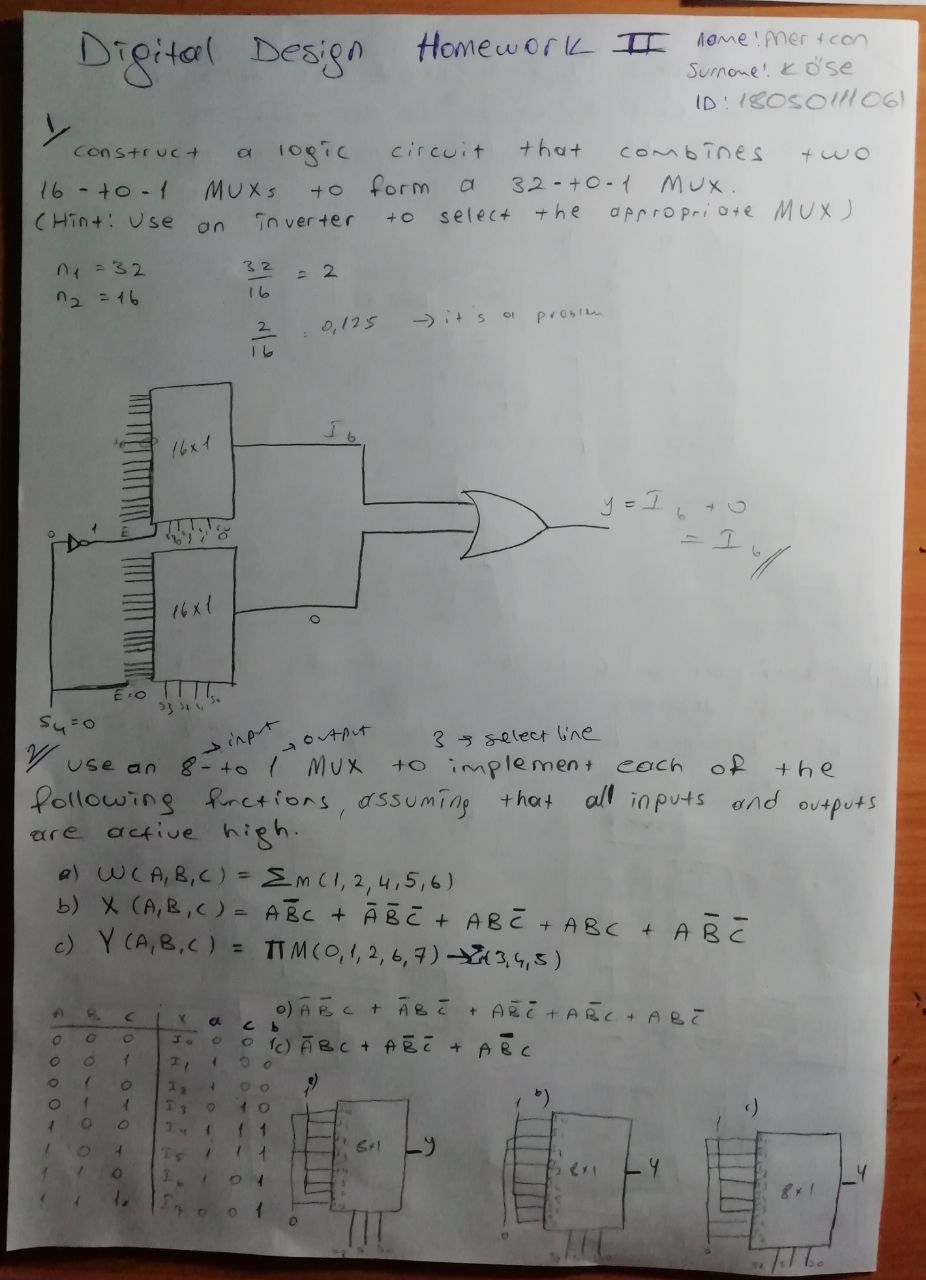 Digital Design Homework II
Name: Mertcan
Surname: Köse
ID: 18050111061
1
construct a logic circuit that combines two
16-to-1 MUXs to form a 32-to-1 MUX.
(Hint: Use an inverter to select the appropriate MUX)
n1 = 32
n2 = 16
32/16 = 2
2/16 = 0,125 → it's a problem
16x1
I6
0 1 E
16x1
0
E=0
S3 S2 S1 S0
S4=0
y = I6 + 0
= I6
2 → input → output 3 → select line
Use an 8-to 1 MUX to implement each of the
following functions, assuming that all inputs and outputs
are active high.
a) W(A,B,C) = Σm(1,2,4,5,6)
b) X(A,B,C) = AB̅C + A̅B̅C̅ + ABC̅ + ABC + AB̅C̅
c) Y(A,B,C) = ΠM(0,1,2,6,7) → Σ(3,4,5)
a) A̅B̅C + A̅BC̅ + AB̅C̅ + AB̅C + ABC̅
c) A̅BC + AB̅C̅ + AB̅C
A B C X a c b
0 0 0 I0 0 0 1
0 0 1 I1 1 0 0
0 1 0 I2 1 0 0
0 1 1 I3 0 1 0
1 0 0 I4 1 1 1
1 0 1 I5 1 1 1
1 1 0 I6 1 0 1
1 1 1 I7 0 0 1
a) 1 0 8x1 y
b) 1 0 8x1 y
c) 1 0 8x1 y